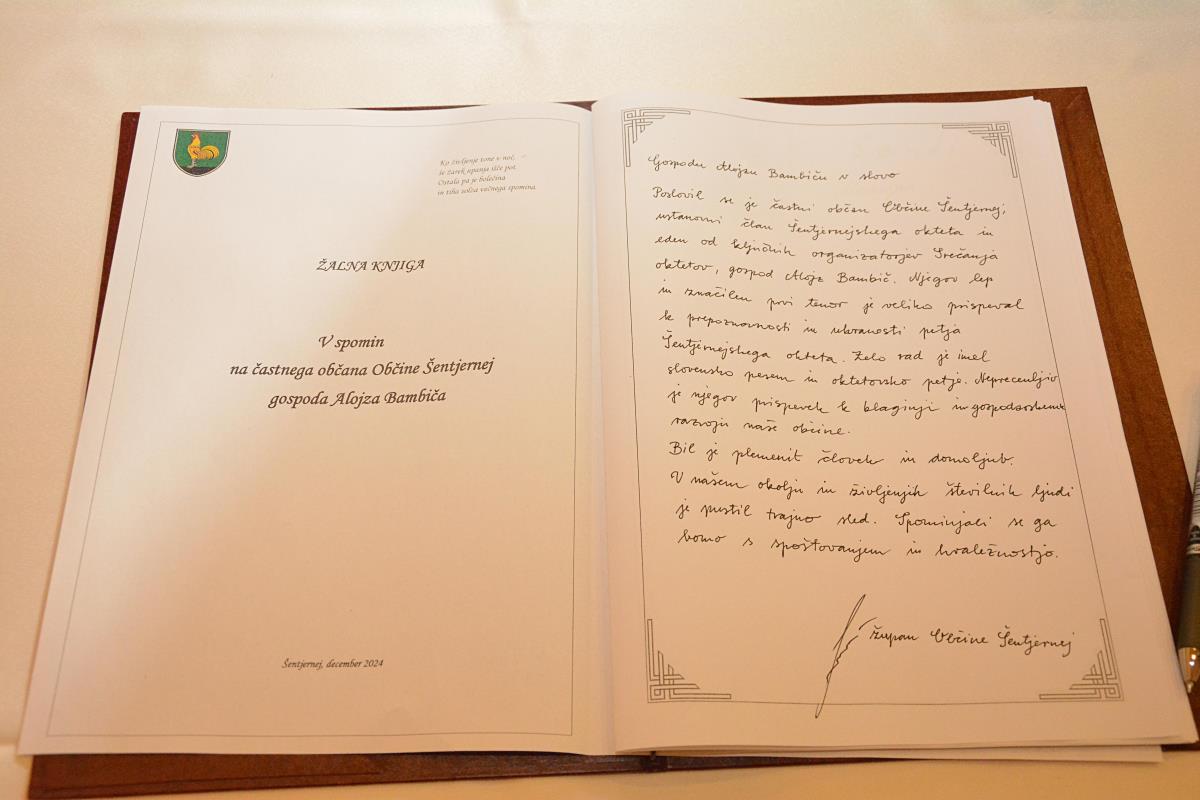 Ko življenje tone v noč,
še žarek upanja išče pot.
Ostala pa je bolečina
in tiha solza večnega spomina.
ŽALNA KNJIGA
V spomin
na častnega občana Občine Šentjernej
gospoda Alojza Bambiča
Šentjernej, december 2024
Gospodu Alojzu Bambiču v slovo
Poslovil se je častni občan Občine Šentjernej,
ustanovni član Šentjernejskega okteta in
eden od ključnih organizatorjev Srečanja
oktetov, gospod Alojz Bambič. Njegov lep
in značilen prvi tenor je veliko prispeval
k prepoznavnosti in ubranosti petja
Šentjernejskega okteta. Zelo rad je imel
slovensko pesem in oktetovsko petje. Neprecenljiv
je njegov prispevek k blaginji in gospodarskemu
razvoju naše občine.
Bil je plemenit človek in domoljub.
V našem okolju in življenjih številnih ljudi
je pustil trajno sled. Spominjali se ga
bomo s spoštovanjem in hvaležnostjo.
Župan Občine Šentjernej